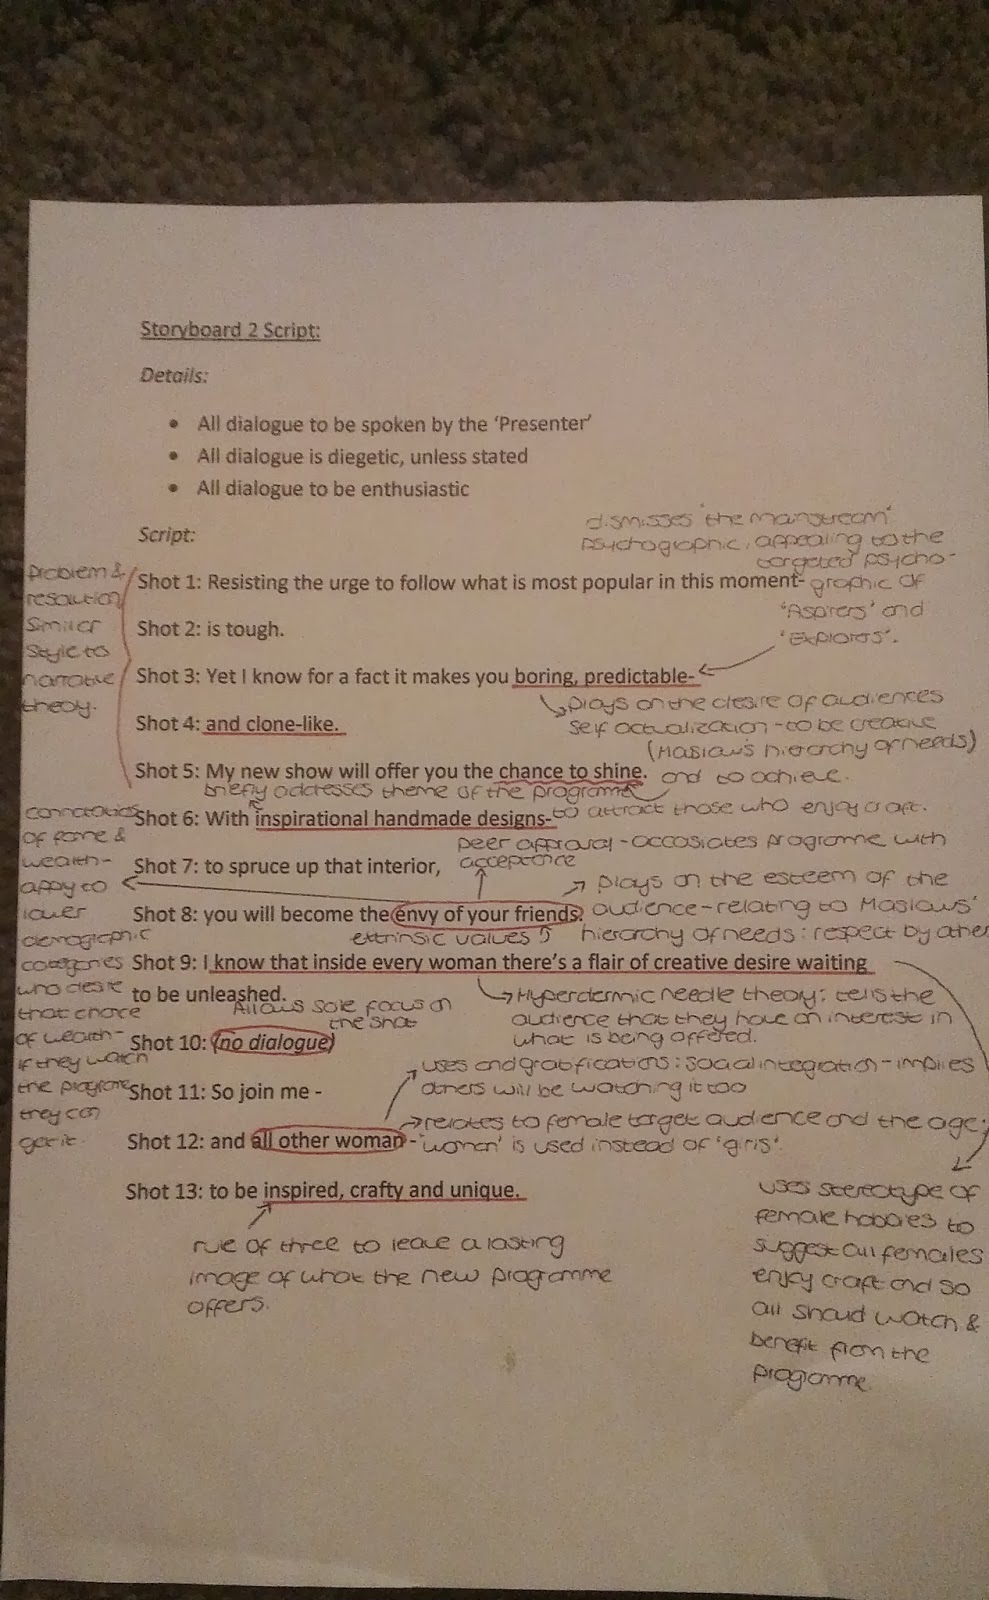 Storyboard 2 Script:
Details:
• All dialogue to be spoken by the ‘Presenter’
• All dialogue is diegetic, unless stated
• All dialogue to be enthusiastic
Script:
dismisses 'the mainstream'
psychographic, appealing to the
targeted psycho-
graphic of
'Aspirers' and
'Explorers'.
Problem &
resolution
similar
style to
narrative
theory.
Shot 1: Resisting the urge to follow what is most popular in this moment-
Shot 2: is tough.
Shot 3: Yet I know for a fact it makes you boring, predictable-
plays on the desire of audiences
self actualization - to be creative
(Maslow's hierarchy of needs)
and to achieve.
Shot 4: and clone-like.
Shot 5: My new show will offer you the chance to shine.
briefly addresses theme of the programme
to attract those who enjoy craft.
Shot 6: With inspirational handmade designs-
peer approval - accosiates programme with
acceptance
Shot 7: to spruce up that interior,
connotations
of fame &
wealth -
appy to
lower
demographic
categories
who desire
that chance
of wealth -
if they watch
the programe
they can
get it.
plays on the esteem of the
audience - relating to Maslows'
hierarchy of needs: respect by other
Shot 8: you will become the envy of your friends.
extrinsic values
Shot 9: I know that inside every woman there’s a flair of creative desire waiting
to be unleashed.
Hyperdermic needle theory: tells the
audience that they have an interest in
what is being offered.
Allows sole focus on
the shot
Shot 10: (no dialogue)
uses and gratifications: social integration - implies
others will be watching it too
Shot 11: So join me -
relates to female target audience and the age;
'women' is used instead of 'girls'.
Shot 12: and all other woman -
Shot 13: to be inspired, crafty and unique.
rule of three to leave a lasting
image of what the new programme
offers.
uses stereotype of
female hobbies to
suggest all females
enjoy craft and so
all should watch &
benefit from the
programme.